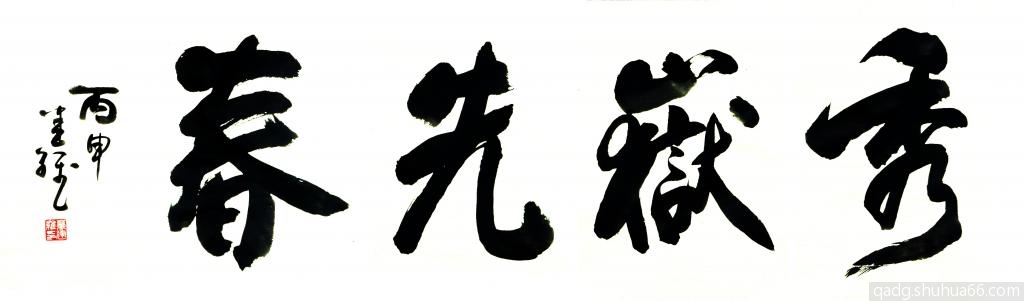 秀嶽先春
丙申
qadg.shuhua66.com